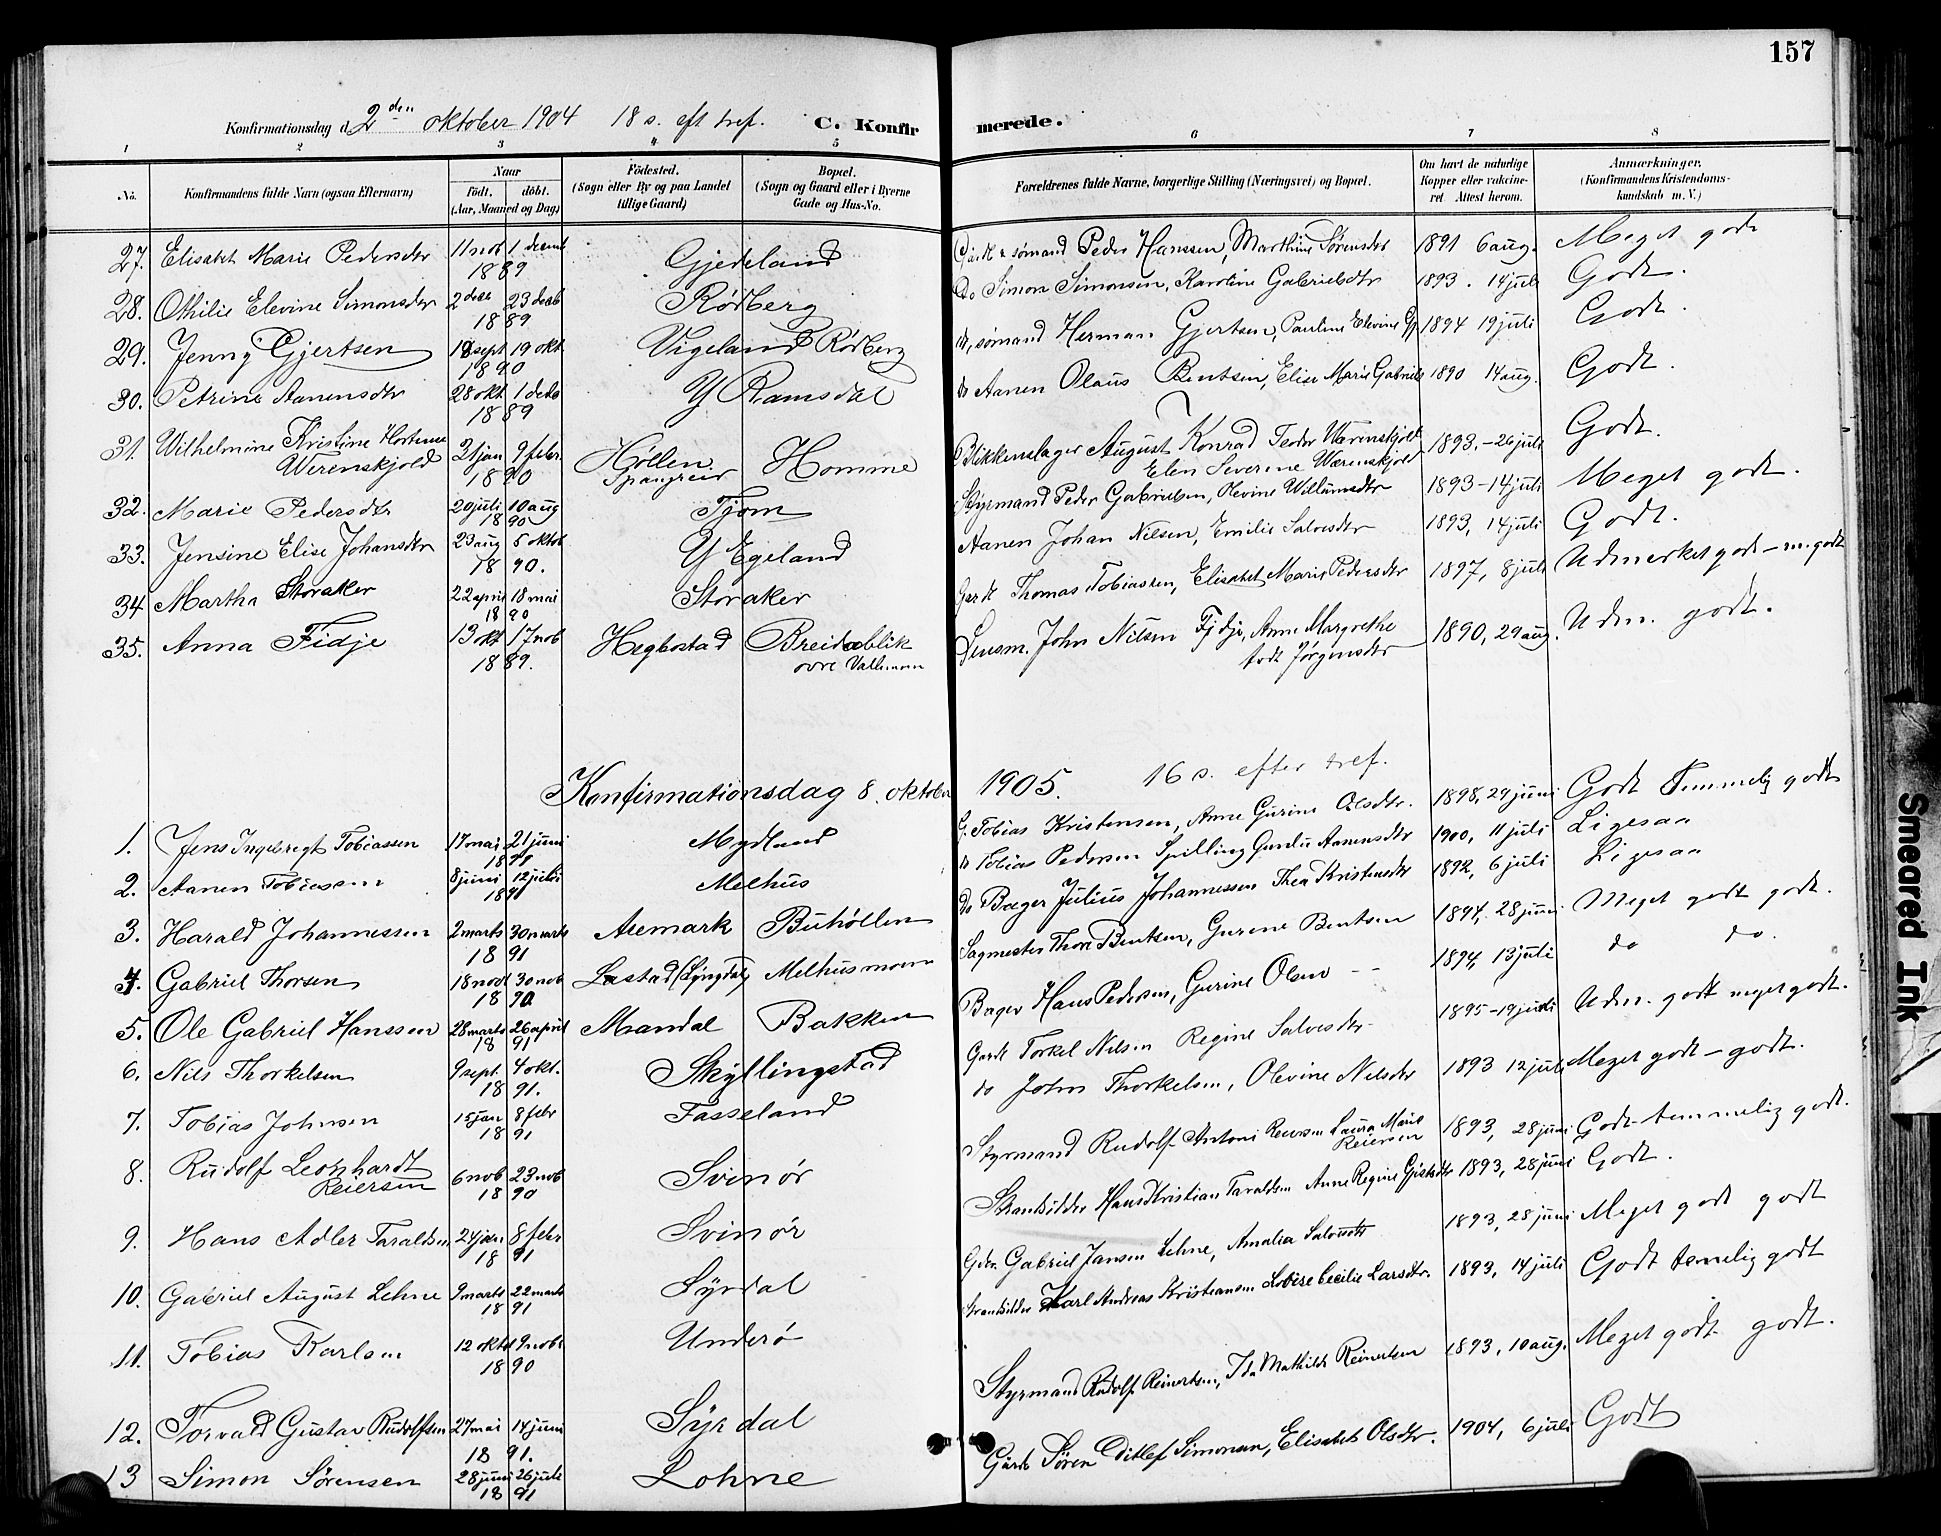 157
Konfirmationsdag d. 2den oktober 1904 18 s. eft tref. C. Konfirmerede.
1 2 3 4 5 6 7 8
No. Konfirmandens fulde Navn (ogsaa Efternavn) Naar Födt. döbt. (Aar, Maaned og Dag) Födested. (Sogn eller By og paa Landet tillige Gaard) Bopæl. (Sogn og Gaard eller i Byerne Gade og Hus-No. Forældrenes fulde Navne, borgerlige Stilling (Næringsvei) og Bopæl. Om havt de naturlige Kopper eller vaccineret Attest herom. Anmærkninger. (Konfirmandens Kristendomskundskab m. V.)
27. Elisabet Marie Pedersdtr 11 nob 1 decemb 1889 Gjedeland Gårdb & sømand Peder Hanssen, Marthine Sørensdtr 1891 6 aug. Meget godt
28. Othilie Elevine Simonsdtr 2 dec 23 decb 1889 Rødberg Do Simon Simonsen, Karoline Gabrielsdtr 1893. 14 juli Godt.
29. Jenny Gjertsen 18 sept 19 okt 1890 Vigeland Rødberg sømand Herman Gjertsen, Pauline Elevine Gj. 1894 19 juli Godt.
30. Petrine Aanensdtr 28 okt 1 decb 1889 Y Ramsdal Aanen Olaus Bentsen, Elise Marie Gabriels 1890 14 aug. Godt.
31. Wilhelmine Kristine Hortense Werenskjold 21 jan 9 febr 1890 Høllen Spangreid Homme Blikkenslager August Konrad Teodor Wærenskjold Elen Severine Wærenskjold 1893.-26 juli Godt.
32. Marie Pedersdtr 20 juli 10 aug 1890 Tjøm Styrmand Peder Gabrielsen, Olevine Willumsdtr 1893-14 juli Meget godt.
33. Jensine Elise Johansdtr 23 aug 5 oktob 1890. Y Egeland Aanen Johan Nilsen, Emilie Salvesdtr 1893, 14 juli Godt.
34 Martha Storaker 22 april 18 mai 1890 Storaker Garb Thomas Tobiassen, Elisabet Marie Pedersdtr 1897, 8 juli Udmerket godt - m. godt
35. Anna Fidje 13 okt 17 nob 1889. Hegbostad Breidablik øvre Vallemoen Lensm. John Nilsen Fidje, Anne Margrethe født Jørgensdtr 1890, 29 aug. Udm. godt.
Konfirmationsdag 8. oktober 1905. 16 s. efter tref.
1. Jens Ingebregt Tobiassen 17 mai 21 juni 1891 Mydland G. Tobias Kristensen, Anne Gurine Olsdtr. 1898, 29 juni Godt Temmelig godt
2. Aanen Tobiassen 8 juni 12 juli 1891 Melhus Tobias Pedersen Spilling Gunda Aanensdtr 1900, 11 juli Ligesaa
3. Harald Johannessen 2 marts 30 marts 1891 Aremark Buhøllen do Bager Julius Johannessen Thea Kristensdtr 1892, 6 juli Ligesaa
4. Gabriel Thorsen 18 nod 30 nob 1890 Lastad (Lyngdal) Melhusmoen Sagmester Thore Bentsen, Gurene Bentsen 1894, 28 juni Meget godt godt.
5. Ole Gabriel Hanssen 28 marts 26 april 1891 Mandal Bakken Bager Hans Pedersen, Gurine Olsen -- 1894, 13 juli do do.
6. Nils Thorkelsen 9 sept. 4 okt. 1891. Skyllingstad Garb Torkel Nilsen Regine Salvesdtr 1895-19 juli Udm. godt meget godt.
7. Tobias Johnsen 15 jan 8 febr 1891 Fasseland do John Thorkelsen, Olevine Nilsdtr 1893 12 juli Meget godt - godt.
8. Rudolf Leonhardt Reiersen 6 nob 23 nob 1890 Svinør Styrmand Rudolf Antoni Reiersen Laura Marie Reiersen 1893, 28 juni Godt-temmelig godt.
9. Hans Adler Taraldsen 24 jan 8 febr 1891 Svinør Strandsidder Hans Kristian Taraldsen Anne Regine Gjertsdtr 1893, 28 juni Godt.
10. Gabriel August Lehne 9 marts 22 marts 1891 Syrdal Gdbr. Gabriel Jansen Lehne, Amalia Salvesdtr 1893, 28 juni Meget godt godt
11. Tobias Karlsen 12 okt 19 nob 1890 Underø Strandsidder Karl Andreas Kristiansen Lovise Cecilie Larsdtr. 1893, 14 juli Godt temelig godt
12. Torvald Gustav Rudolfsen 27 mai 14 juni 1891. Syrdal Styrmand Rudolf Reinertsen, Ida Mathilde Reinertsen 1893, 10 aug. Meget godt godt.
13 Simon Sørensen 28 juni 26 juli 1891 Lohne Gårdb Søren Ditlef Simonsen, Elisabet Olsdtr. 1904, 6 juli Godt
Smeared Ink